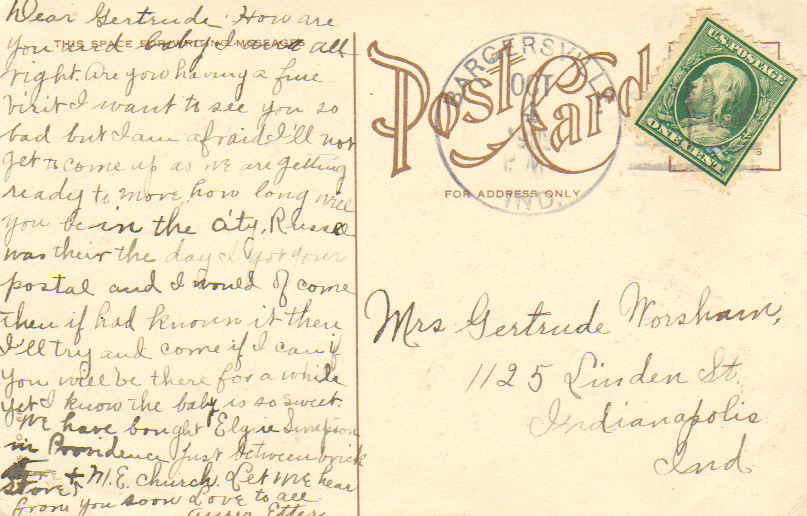 Dear Gertrude. How are
you and baby I am all
right. Are you having a fine
visit I want to see you so
bad but I am afraid I'll not
get to come up as we are getting
ready to move, how long will
you be in the city. Russell
was their the day I got your
postal and I would of come
then if had known it then
I'll try and come if I can if
you will be there for a while
yet I know the baby is so sweet.
We have bought Elgie Simpson
in Providence just between brick
store + M.E. church. Let me hear
from you soon Love to all
THIS SPACE FOR WRITING MESSAGES
Post Card
FOR ADDRESS ONLY
BARGERSVILLE
OCT
IND.
U.S. POSTAGE
ONE CENT
Mrs Gertrude Worsham,
1125 Linden St.
Indianapolis
Ind